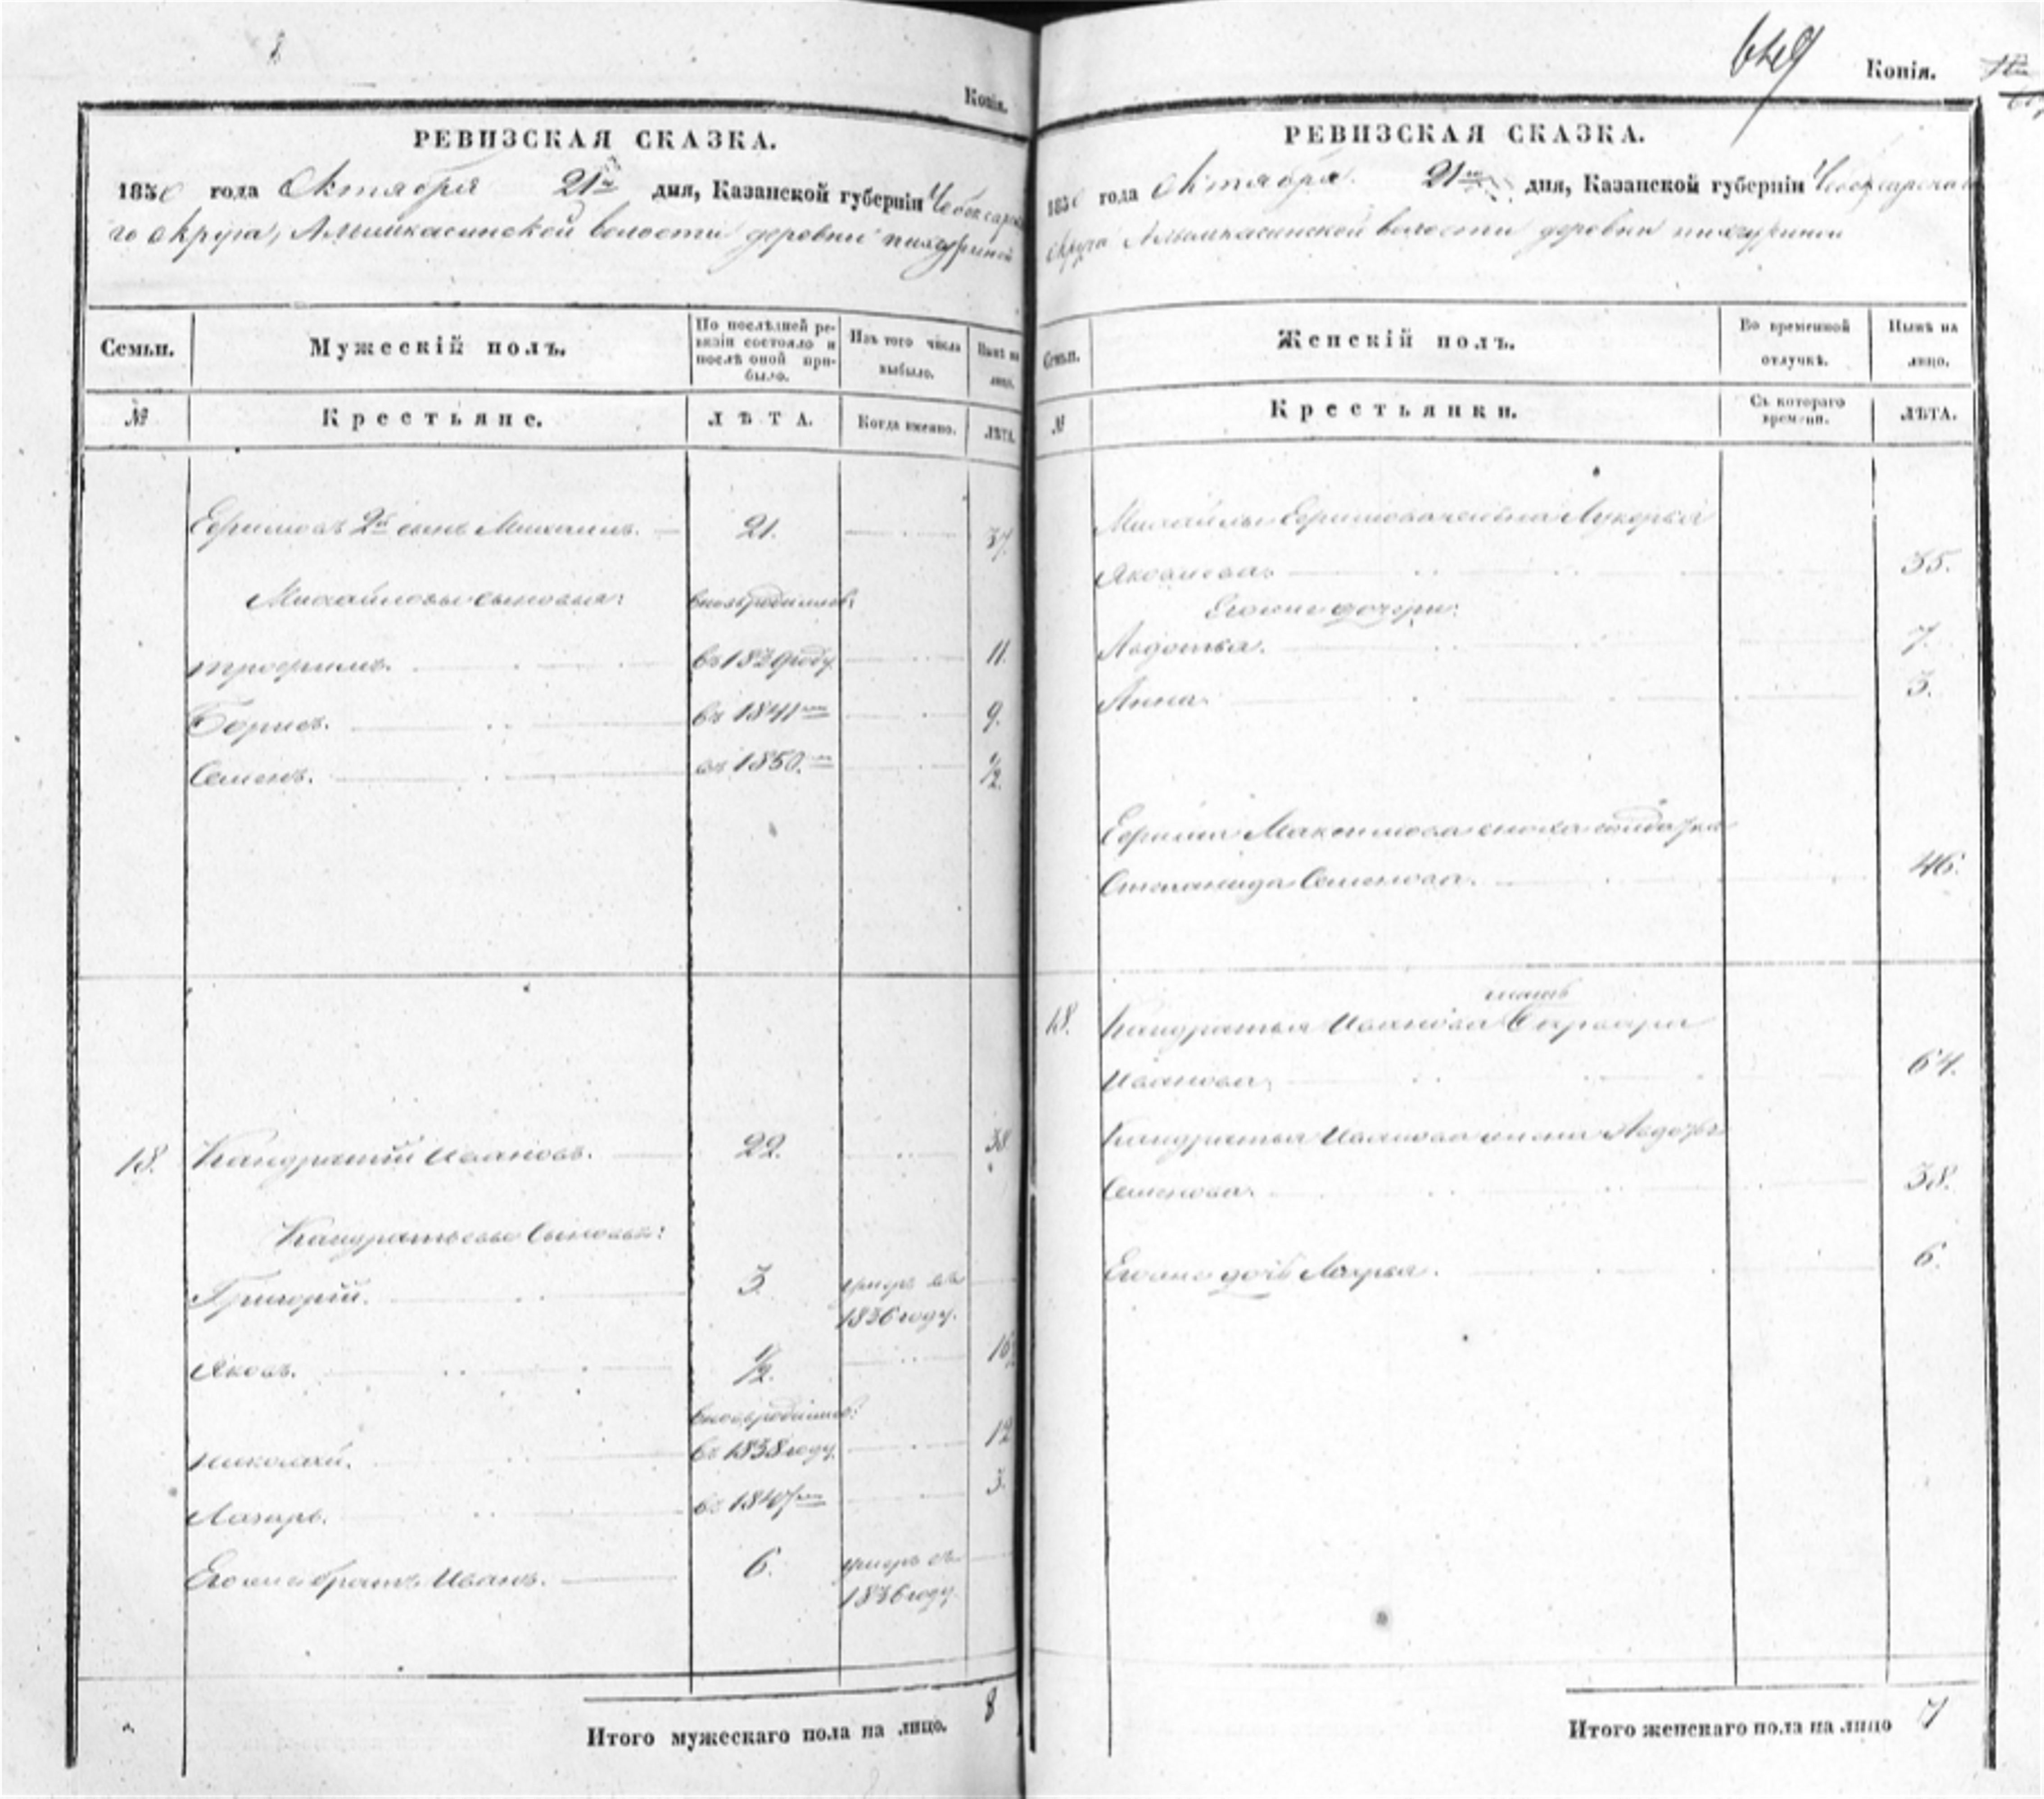 8
Копія.
РЕВИЗСКАЯ СКАЗКА.
1850 года Октября 21го дня, Казанской губерніи Чебоксарска
го округа, Алымкасинской волости деревни пихтулиной
Семьи.
Мужескій полъ.
По послѣдней ре-
визіи состояло и
послѣ оной при-
было.
Изъ того числа
выбыло.
Нынѣ на
лицо.
№
Крестьяне.
ЛѢТА.
Когда именно.
ЛѢТА.
Ефимовъ 2й сынъ Михаилъ. 21. 37.
Михайловы сыновья: вновьрожденные:
трофимъ. въ 1839 году 11.
Борисъ. въ 1841мъ 9.
Семенъ. въ 1850.мъ 1/2.
18. Кандратій Ивановъ. 22. 38
Кандратьевы Сыновья:
Григорій. 3. умеръ въ
1836 году.
Яковъ. 1/2. 16
вновьрожденные:
николай. въ 1838 году 12
Лазарь. въ 1847мъ 3.
Егоже братъ Иванъ. 6. умеръ въ
1836 году.
Итого мужескаго пола на лицо. 8
649
Копія.
РЕВИЗСКАЯ СКАЗКА.
1850 года Октября 21го дня, Казанской губерніи Чебоксарскаго
округа Алымкасинской волости деревни
Семьи.
Женскій полъ.
Во временной
отлучкѣ.
Нынѣ на
лицо.
№
Крестьянки.
Съ котораго
времени.
ЛѢТА.
Михайлы Ефимова жена Лукерья
Яковлева. 35.
Егоже дочери:
Авдотья. 7.
Анна. 3.
Ефима Максимова сноха солдатка
Степанида Семенова. 46.
мать
18. Кандратья Иванова Варвара
Иванова. 64.
Кандратья Иванова жена Авдотья
Семенова. 38.
Егоже дочь Марья. 6.
Итого женскаго пола на лицо 7